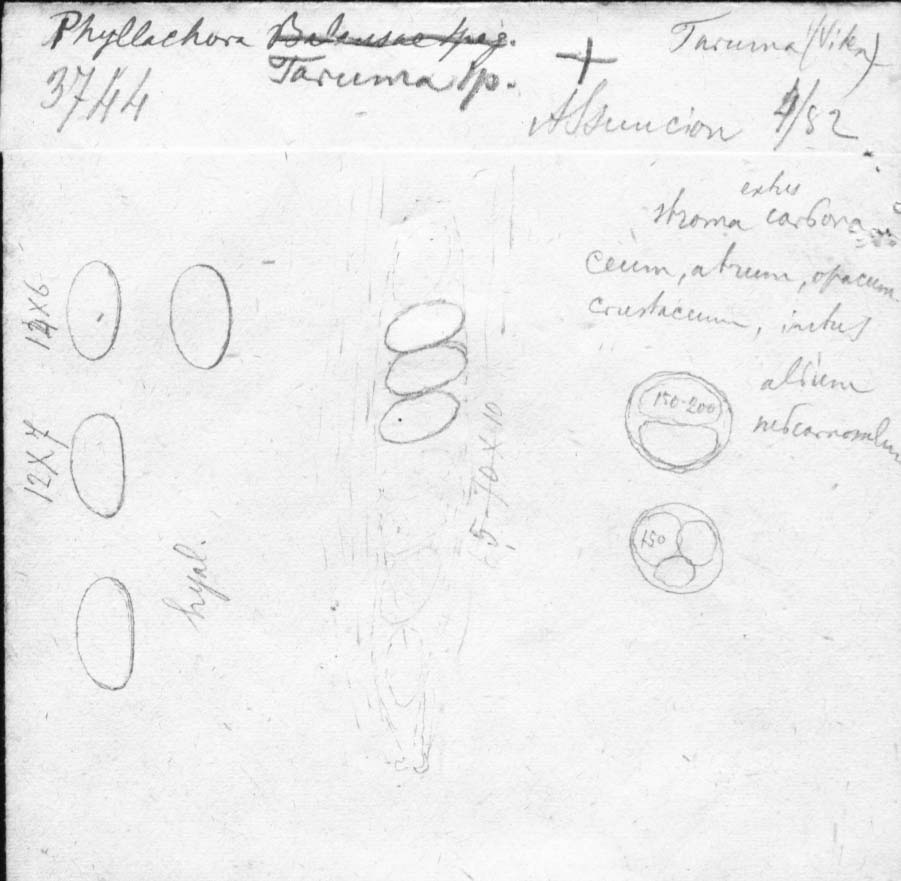 Phyllachora Balansae Speg.
Taruma Sp. + Taruma (Vitex)
3744
Assuncion 4/82
extus
stroma carbona
ceum, atrum, opacum
crustaceum, intus
album
subcarnosulum
12x6
150-200
12x7
75-70x10
150
hyal.